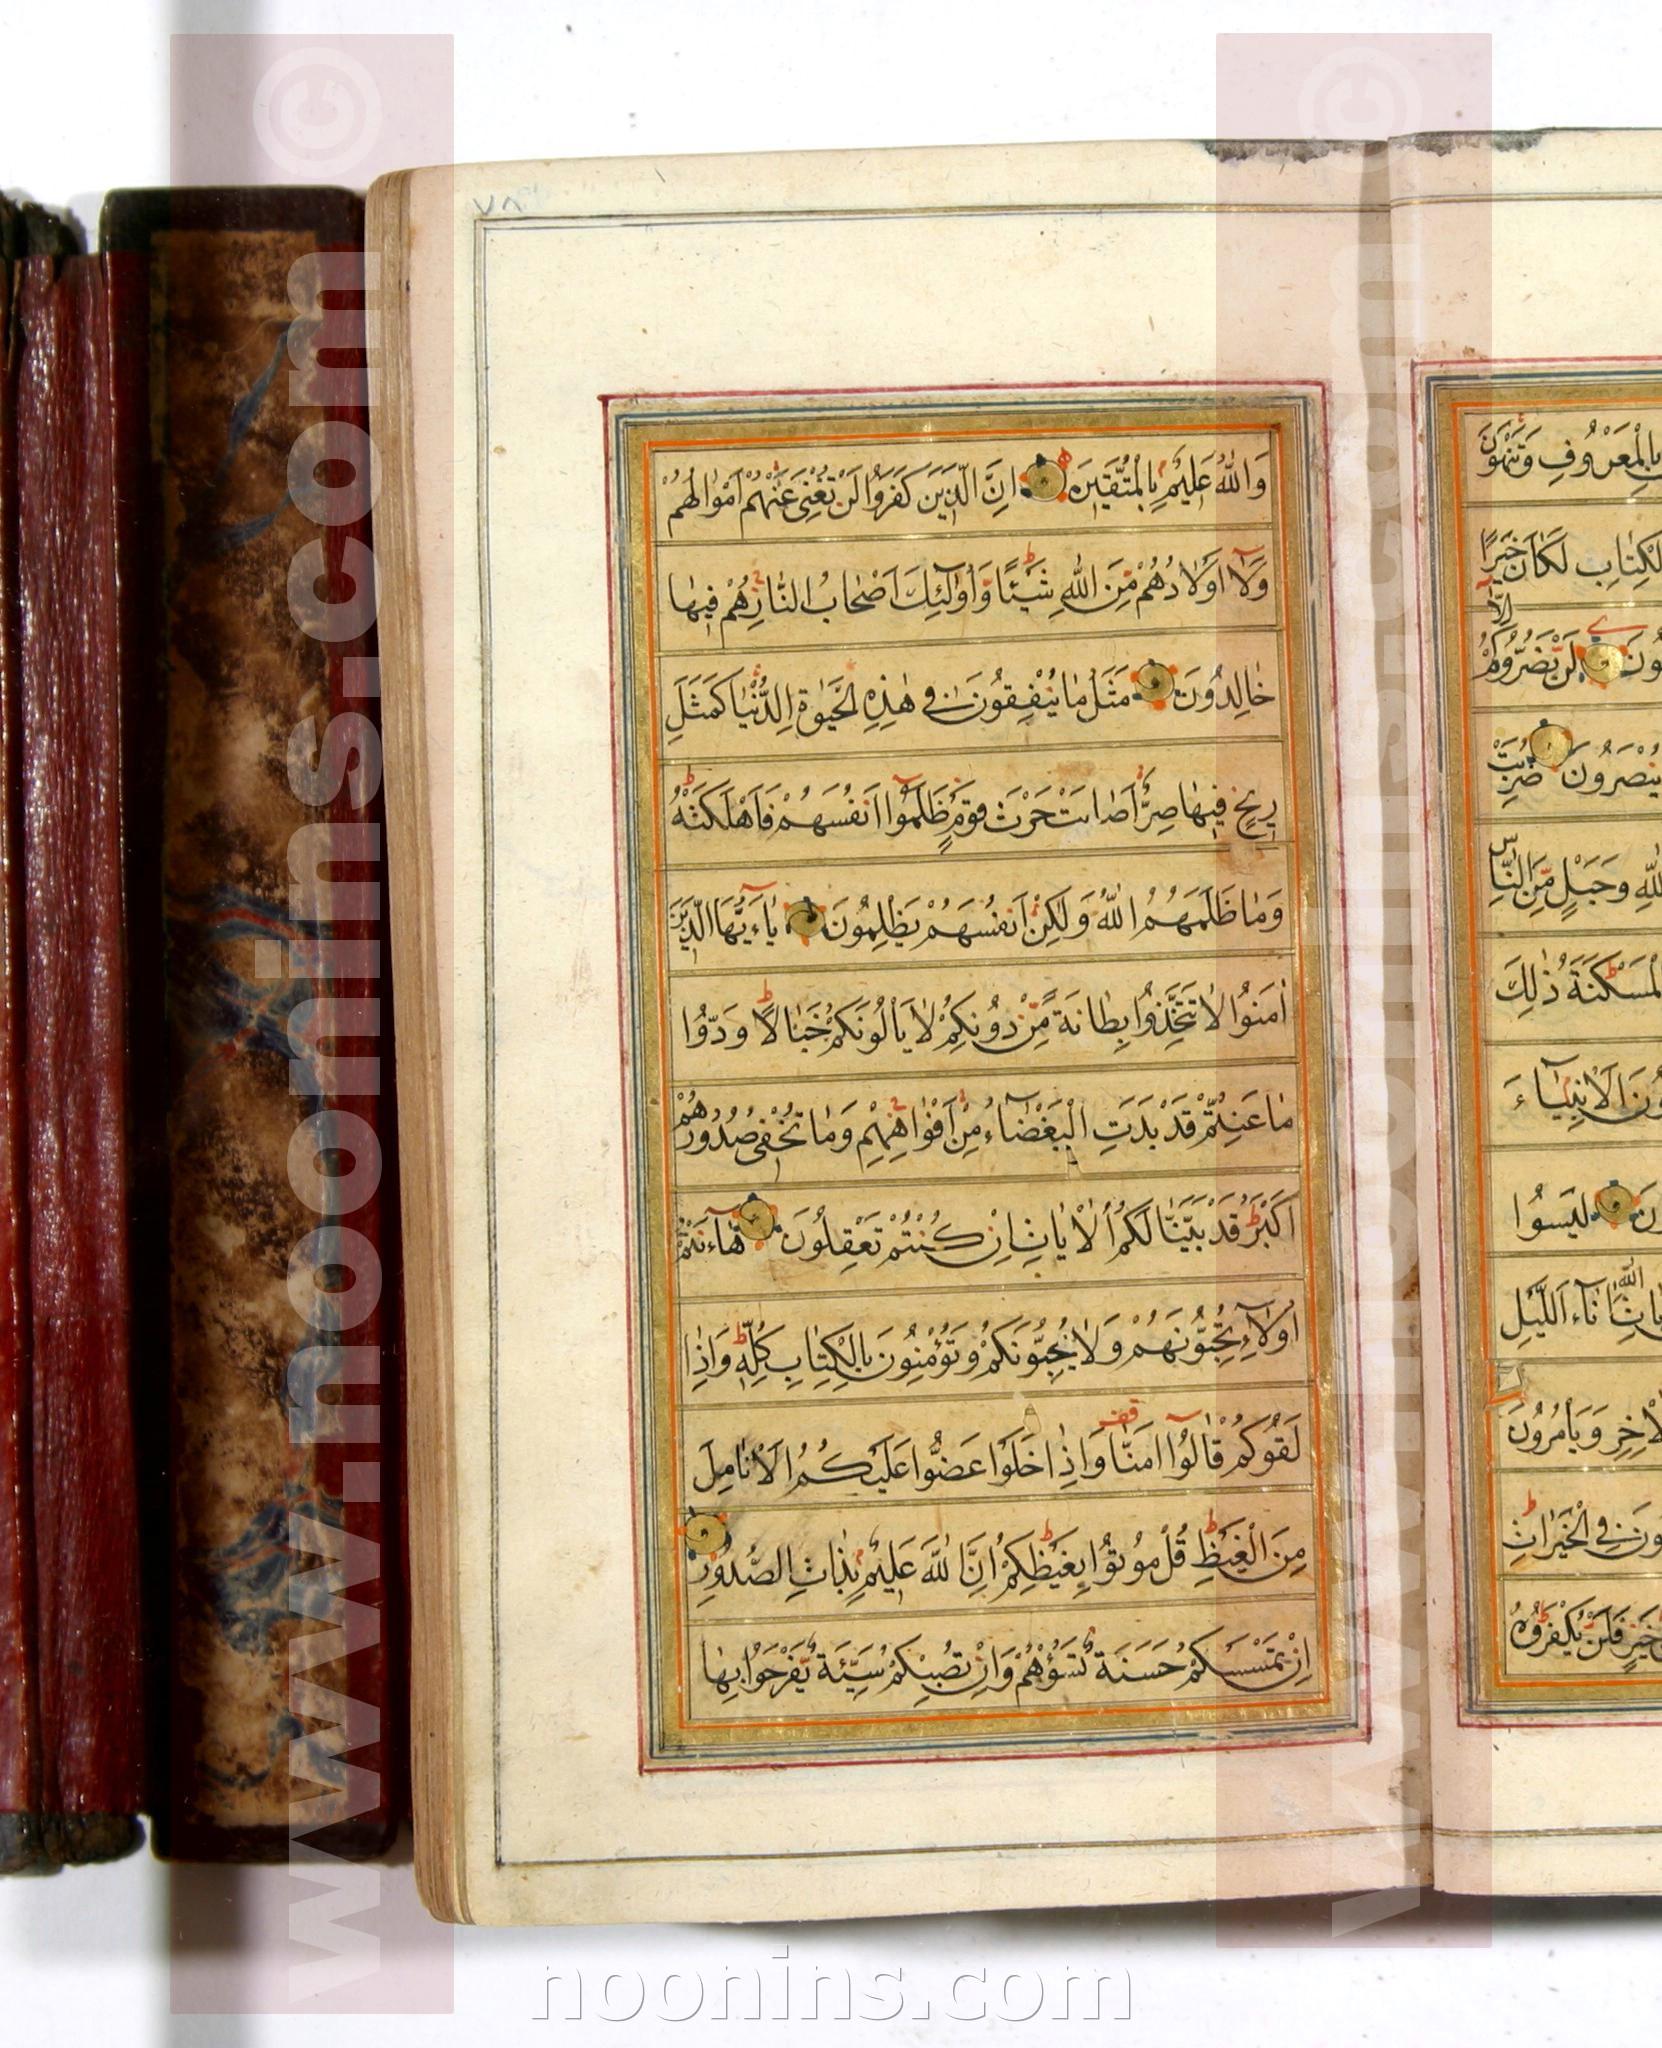 بِالْمَعْرُوفِ وَتَنْهَوْنَ
لْكِتٰابِ لَكٰانَ خَيْرًا
اِلّٰا
لَنْ يَضُرُّوكُمْ
يُنْصَرُونَ ضُرِبَتْ
للّٰهِ وَحَبْلٍ مِّنَ النّٰاسِ
لْمَسْكَنَةُ ذٰلِكَ
الْاَنْبِيٰٓاءَ
لَيْسُوا
اللّٰهِ اٰنٰٓاءَ اللَّيْلِ
وَيَأْمُرُونَ
فِي الْخَيْرٰاتِ
خَيْرٍ فَلَنْ يُكْفَرُوهُ
٧٨
وَاللّٰهُ عَلِيمٌ بِالْمُتَّقِينَ اِنَّ الَّذِينَ كَفَرُوا لَنْ تُغْنِيَ عَنْهُمْ اَمْوٰالُهُمْ
وَلَآ اَوْلٰادُهُمْ مِّنَ اللّٰهِ شَيْئًا وَّاُولٰٓئِكَ اَصْحٰابُ النّٰارِ هُمْ فِيهٰا
خٰالِدُونَ مَثَلُ مٰا يُنْفِقُونَ فِي هٰذِهِ الْحَيٰوةِ الدُّنْيٰا كَمَثَلِ
رِيحٍ فِيهٰا صِرٌّ اَصٰابَتْ حَرْثَ قَوْمٍ ظَلَمُوٓا اَنْفُسَهُمْ فَاَهْلَكَتْهُ
وَمٰا ظَلَمَهُمُ اللّٰهُ وَلٰكِنْ اَنْفُسَهُمْ يَظْلِمُونَ يٰٓاءَيُّهَا الَّذِينَ
اٰمَنُوا لٰا تَتَّخِذُوا بِطٰانَةً مِّنْ دُونِكُمْ لٰا يَأْلُونَكُمْ خَبٰالًا وَدُّوا
مٰا عَنِتُّمْ قَدْ بَدَتِ الْبَغْضٰٓاءُ مِنْ اَفْوٰاهِهِمْ وَمٰا تُخْفِي صُدُورُهُمْ
اَكْبَرُ قَدْ بَيَّنّٰا لَكُمُ الْاٰيٰاتِ اِنْ كُنْتُمْ تَعْقِلُونَ هٰٓاءَنْتُمْ
اُولٰٓاءِ تُحِبُّونَهُمْ وَلٰا يُحِبُّونَكُمْ وَتُؤْمِنُونَ بِالْكِتٰابِ كُلِّهِ وَاِذٰا
لَقُوكُمْ قٰالُوٓا اٰمَنّٰا وَاِذٰا خَلَوْا عَضُّوا عَلَيْكُمُ الْاَنٰامِلَ
مِنَ الْغَيْظِ قُلْ مُوتُوا بِغَيْظِكُمْ اِنَّ اللّٰهَ عَلِيمٌ بِذٰاتِ الصُّدُورِ
اِنْ تَمْسَسْكُمْ حَسَنَةٌ تَسُؤْهُمْ وَاِنْ تُصِبْكُمْ سَيِّئَةٌ يَفْرَحُوا بِهٰا
www.noonins.com ©
www.noonins.com ©
noonins.com